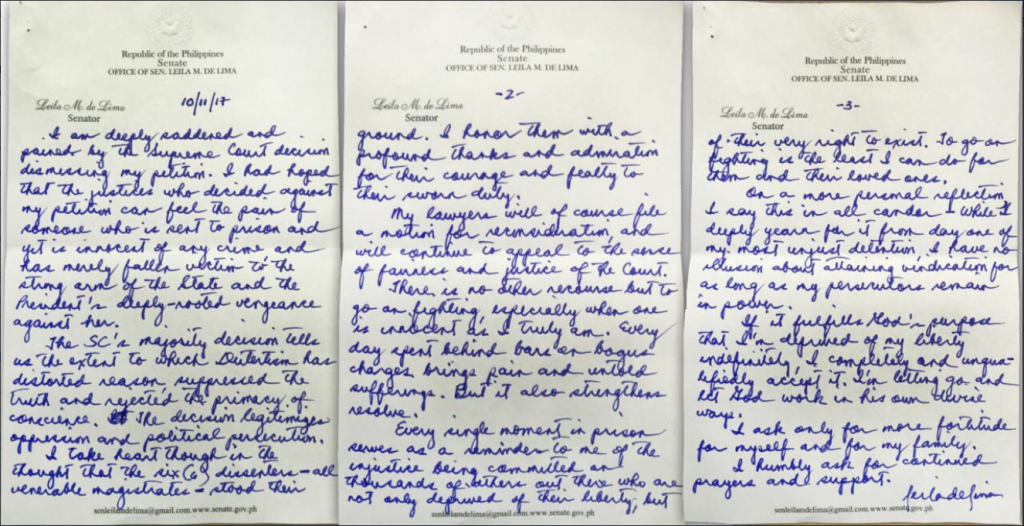 Republic of the Philippines
Senate
OFFICE OF SEN. LEILA M. DE LIMA
Leila M. de Lima
Senator
10/11/17
I am deeply saddened and
pained by the Supreme Court decision
dismissing my petition. I had hoped
that the justices who decided against
my petition can feel the pain of
someone who is sent to prison and
yet is innocent of any crime and
has merely fallen victim to the
strong arm of the State and the
President's deeply-rooted vengeance
against her.
The SC's majority decision tells
us the extent to which Dutertism has
distorted reason, suppressed the
truth and rejected the primacy of
conscience. The decision legitimizes
oppression and political persecution.
I take heart though in the
thought that the six (6) dissenters – all
venerable magistrates – stood their
senleilamdelima@gmail.com.www.senate.gov.ph
Republic of the Philippines
Senate
OFFICE OF SEN. LEILA M. DE LIMA
-2-
Leila M. de Lima
Senator
ground. I honor them with a
profound thanks and admiration
for their courage and fealty to
their sworn duty.
My lawyers will of course file
a motion for reconsideration, and
will continue to appeal to the sense
of fairness and justice of the Court.
There is no other recourse but to
go on fighting, especially when one
is innocent as I truly am. Every
day spent behind bars on bogus
charges brings pain and untold
sufferings. But it also strengthens
resolve.
Every single moment in prison
serves as a reminder to me of the
injustice being committed on
thousands of others out there who are
not only deprived of their liberty, but
senleilamdelima@gmail.com.www.senate.gov.ph
Republic of the Philippines
Senate
OFFICE OF SEN. LEILA M. DE LIMA
-3-
Leila M. de Lima
Senator
of their very right to exist. To go on
fighting is the least I can do for
them and their loved ones.
On a more personal reflection,
I say this in all candor – While I
deeply yearn for it from day one of
my most unjust detention, I have no
illusion about attaining vindication for
as long as my persecutors remain
in power.
If it fulfills God's purpose
that I'm deprived of my liberty
indefinitely, I completely and unqua-
lifiedly accept it. I'm letting go and
let God work in his own divine
ways.
I ask only for more fortitude
for myself and for my family.
I humbly ask for continued
prayers and support.
Leila de Lima
senleilamdelima@gmail.com.www.senate.gov.ph